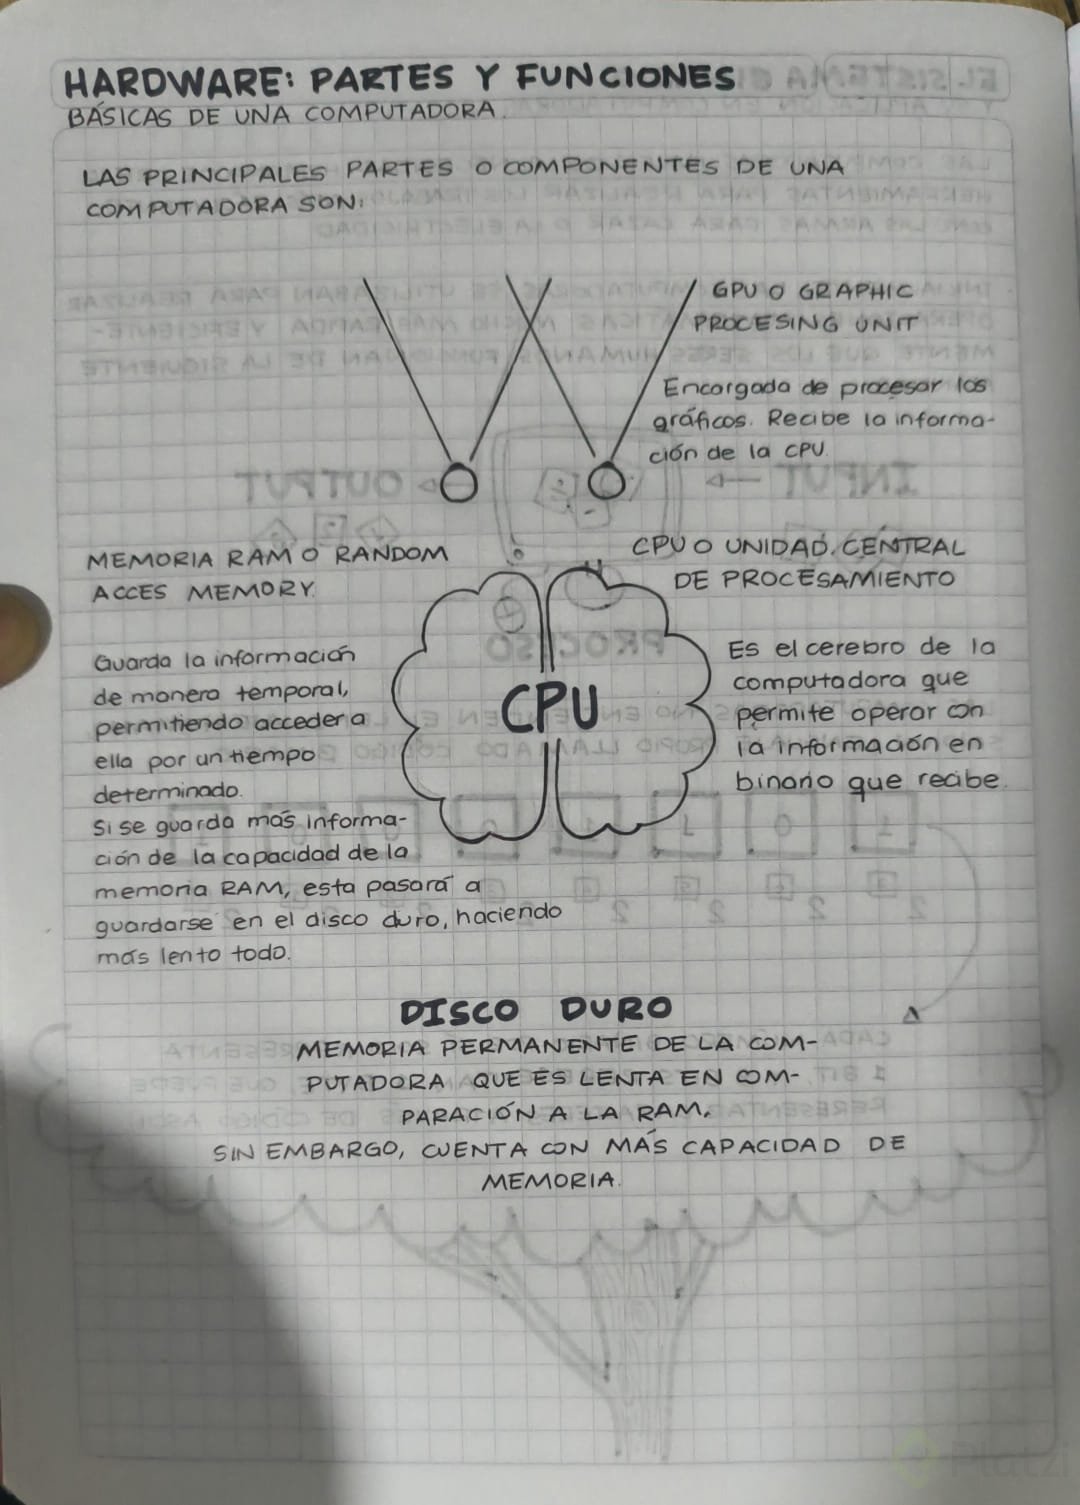 HARDWARE: PARTES Y FUNCIONES
BÁSICAS DE UNA COMPUTADORA.
LAS PRINCIPALES PARTES O COMPONENTES DE UNA
COMPUTADORA SON:
GPU O GRAPHIC
PROCESING UNIT
Encargada de procesar los
gráficos. Recibe la informa-
ción de la CPU.
MEMORIA RAM O RANDOM
ACCES MEMORY.
Guarda la información
de manera temporal,
permitiendo acceder a
ella por un tiempo
determinado.
Si se guarda más informa-
ción de la capacidad de la
memoria RAM, esta pasará a
guardarse en el disco duro, haciendo
más lento todo.
CPU
CPU O UNIDAD CENTRAL
DE PROCESAMIENTO
Es el cerebro de la
computadora que
permite operar con
la información en
binario que recibe.
DISCO DURO
MEMORIA PERMANENTE DE LA COM-
PUTADORA QUE ES LENTA EN COM-
PARACIÓN A LA RAM.
SIN EMBARGO, CUENTA CON MÁS CAPACIDAD DE
MEMORIA.
Platzi